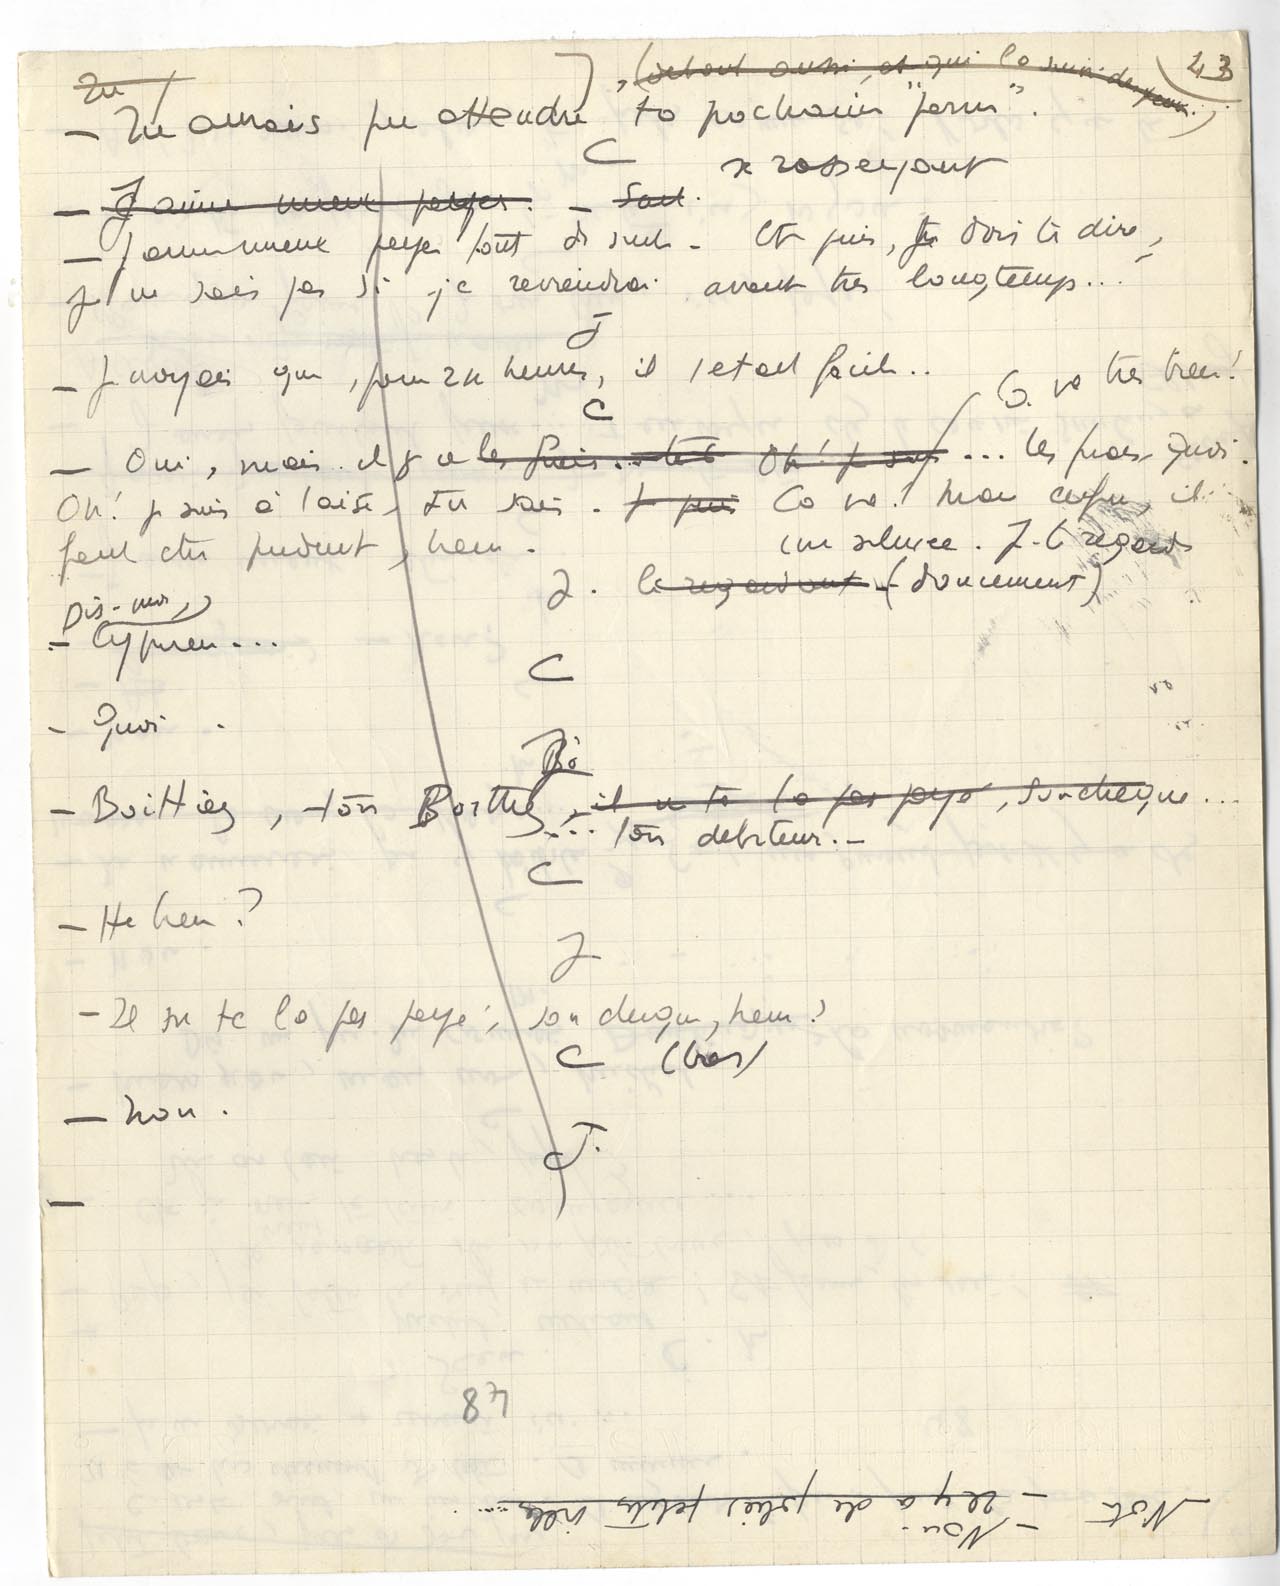 Tu
, (debout aussi, et qui le suivi des yeux.) 43
— Tu aurais pu attendre ta pochaine "perm".
C
se rasseyant
— J'aime mieux payer. — Sout.
— J'aime mieux payer tout de suite. Et puis, je dois te dire,
je ne sais pas si je reviendrai avant très longtemps...
J
— Je croyais que, pour 24 heures, il était facile..
Ça va très bien!
C
— Oui, mais il y a les frais... Oh! je suis ... les frais, quoi.
Oh! je suis à l'aise, tu sais. Ça va! Mais enfin, il
faut être prudent, hein.
un silence. J. le regarde
J. le regardant (doucement)
Dis-moi,
— Cyprien...
C
— Quoi.
J
— Boithiez, ton Boithiez, il ne te l'a pas payé, son chèque...
... ton débiteur..
C
— Hé bien?
J
— Il ne te l'a pas payé, son chèque, hein?
C (bas)
— Non.
J.
—
48
— Il y a de jolies petites villes....
— Non.